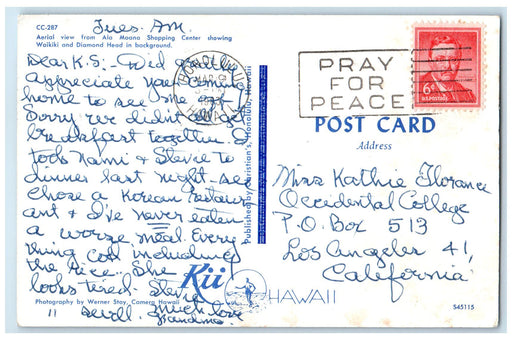 CC-287 Tues. A.M.
Aerial view from Ala Moana Shopping Center showing
Waikiki and Diamond Head in background.
Dear K.S.: - Did
appreciate your coming
home to see me
Sorry we didn't all get
breakfast together. I
took Nami & Stevie to
dinner last night - she
chose a Korean restaur
ant & I've never eaten
a worse meal. Every
thing cold including
the rice. She
looks tired. Stevie
is swell. Much love
Grandma.
Photography by Werner Stoy, Camera Hawaii
Published by Christian's, Honolulu, Hawaii
HONOLULU
MAR 9
PRAY
FOR
PEACE
6¢
U.S. POSTAGE
POST CARD
Address
Miss Kathie Florance
Occidental College
P.O. Box 513
Los Angeles 41,
California
Kii
HAWAII
S45115